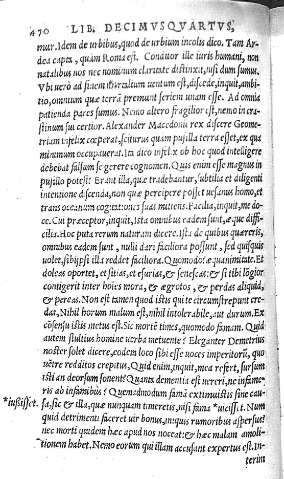 470 LIB. DECIMVSQVARTVS,
mur. Idem de urbibus, quod de urbium incolis dico. Tam Ar-
dea capta, quàm Roma est. Conditor ille iuris humani, non
natalibus nos nec nominum claritate distinxit, nisi dum sumus.
Vbi uerò ad finem mortalium uentum est, discede, inquit, ambi-
tio, omnium quæ terrã premunt seriem unam esse. Ad omnia
patienda pares sumus. Nemo altero fragilior est, nemo in cra-
stinum sui certior. Alexander Macedonũ rex discere Geome-
triam infelix cœperat, sciturus quàm pusilla terra esset, ex qua
minimum occupauerat. Ita dico infelix ob hoc quod intelligere
debebat falsum se gerere cognomen. Quis enim esse magnus in
pusillo potest? Erant illa, quæ tradebantur, subtilia et diligenti
intentione discenda, non quæ percipere posset uesanus homo, et
trans oceanum cogitationes suas mittens. Facilia, inquit, me do-
ce. Cui præceptor, inquit, Ista omnibus eadem sunt, æque diffi-
cilia. Hoc puta rerum naturam dicere. Ista de quibus quæreris,
omnibus eadem sunt, nulli dari faciliora possunt, sed quisquis
uolet, sibi ipsi illa reddet faciliora. Quomodo? æquanimitate. Et
doleas oportet, et sitias, et esurias, & senescas: & si tibi lõgior
contigerit inter hoïes mora, & ægrotes, & perdas aliquid,
& pereas. Non est tamen quod istis qui te circumstrepunt cre-
das, Nihil horum malum est, nihil intolerabile, aut durum. Ex
cõsensu istis metus est. Sic mortẽ times, quomodo famam. Quid
autem stultius homine uerba metuente? Eleganter Demetrius
noster solet dicere, eodem loco sibi esse uoces imperitorũ, quo
uẽtre redditos crepitus, Quid enim, inquit, mea refert, sursum
isti an deorsum sonent? Quanta dementia est uereri, ne infame-
ris ab infamibus? Quemadmodum famã extimuistis sine cau-
*iußisset. sa, sic & illa, quæ nunquam timeretis, nisi fama *uicisset. Nũ
quid detrimenti faceret uir bonus, iniquis rumoribus aspersus?
nec morti quidem hæc apud nos noceat: & hæc malam
tionem habet. Nemo eorum qui illam accusant expertus est. In-
terim